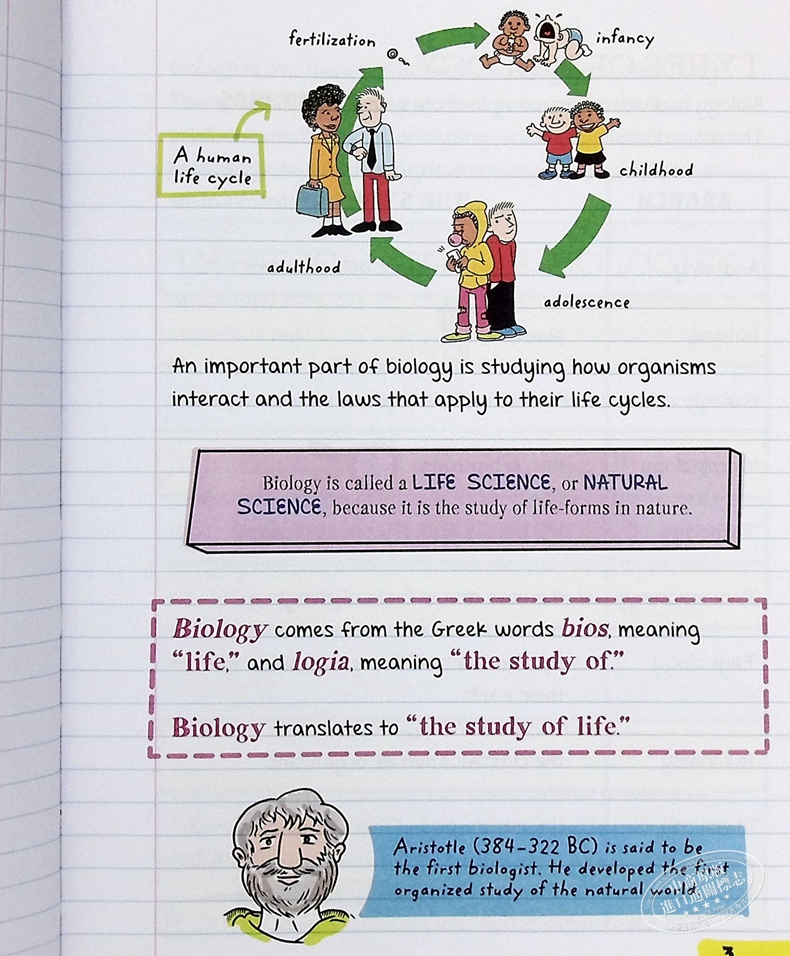 fertilization
infancy
A human
life cycle
childhood
adulthood
adolescence
An important part of biology is studying how organisms
interact and the laws that apply to their life cycles.
Biology is called a LIFE SCIENCE, or NATURAL
SCIENCE, because it is the study of life-forms in nature.
Biology comes from the Greek words bios, meaning
“life,” and logia, meaning “the study of.”
Biology translates to “the study of life.”
Aristotle (384–322 BC) is said to be
the first biologist. He developed the first
organized study of the natural world.
進口通關標志
3